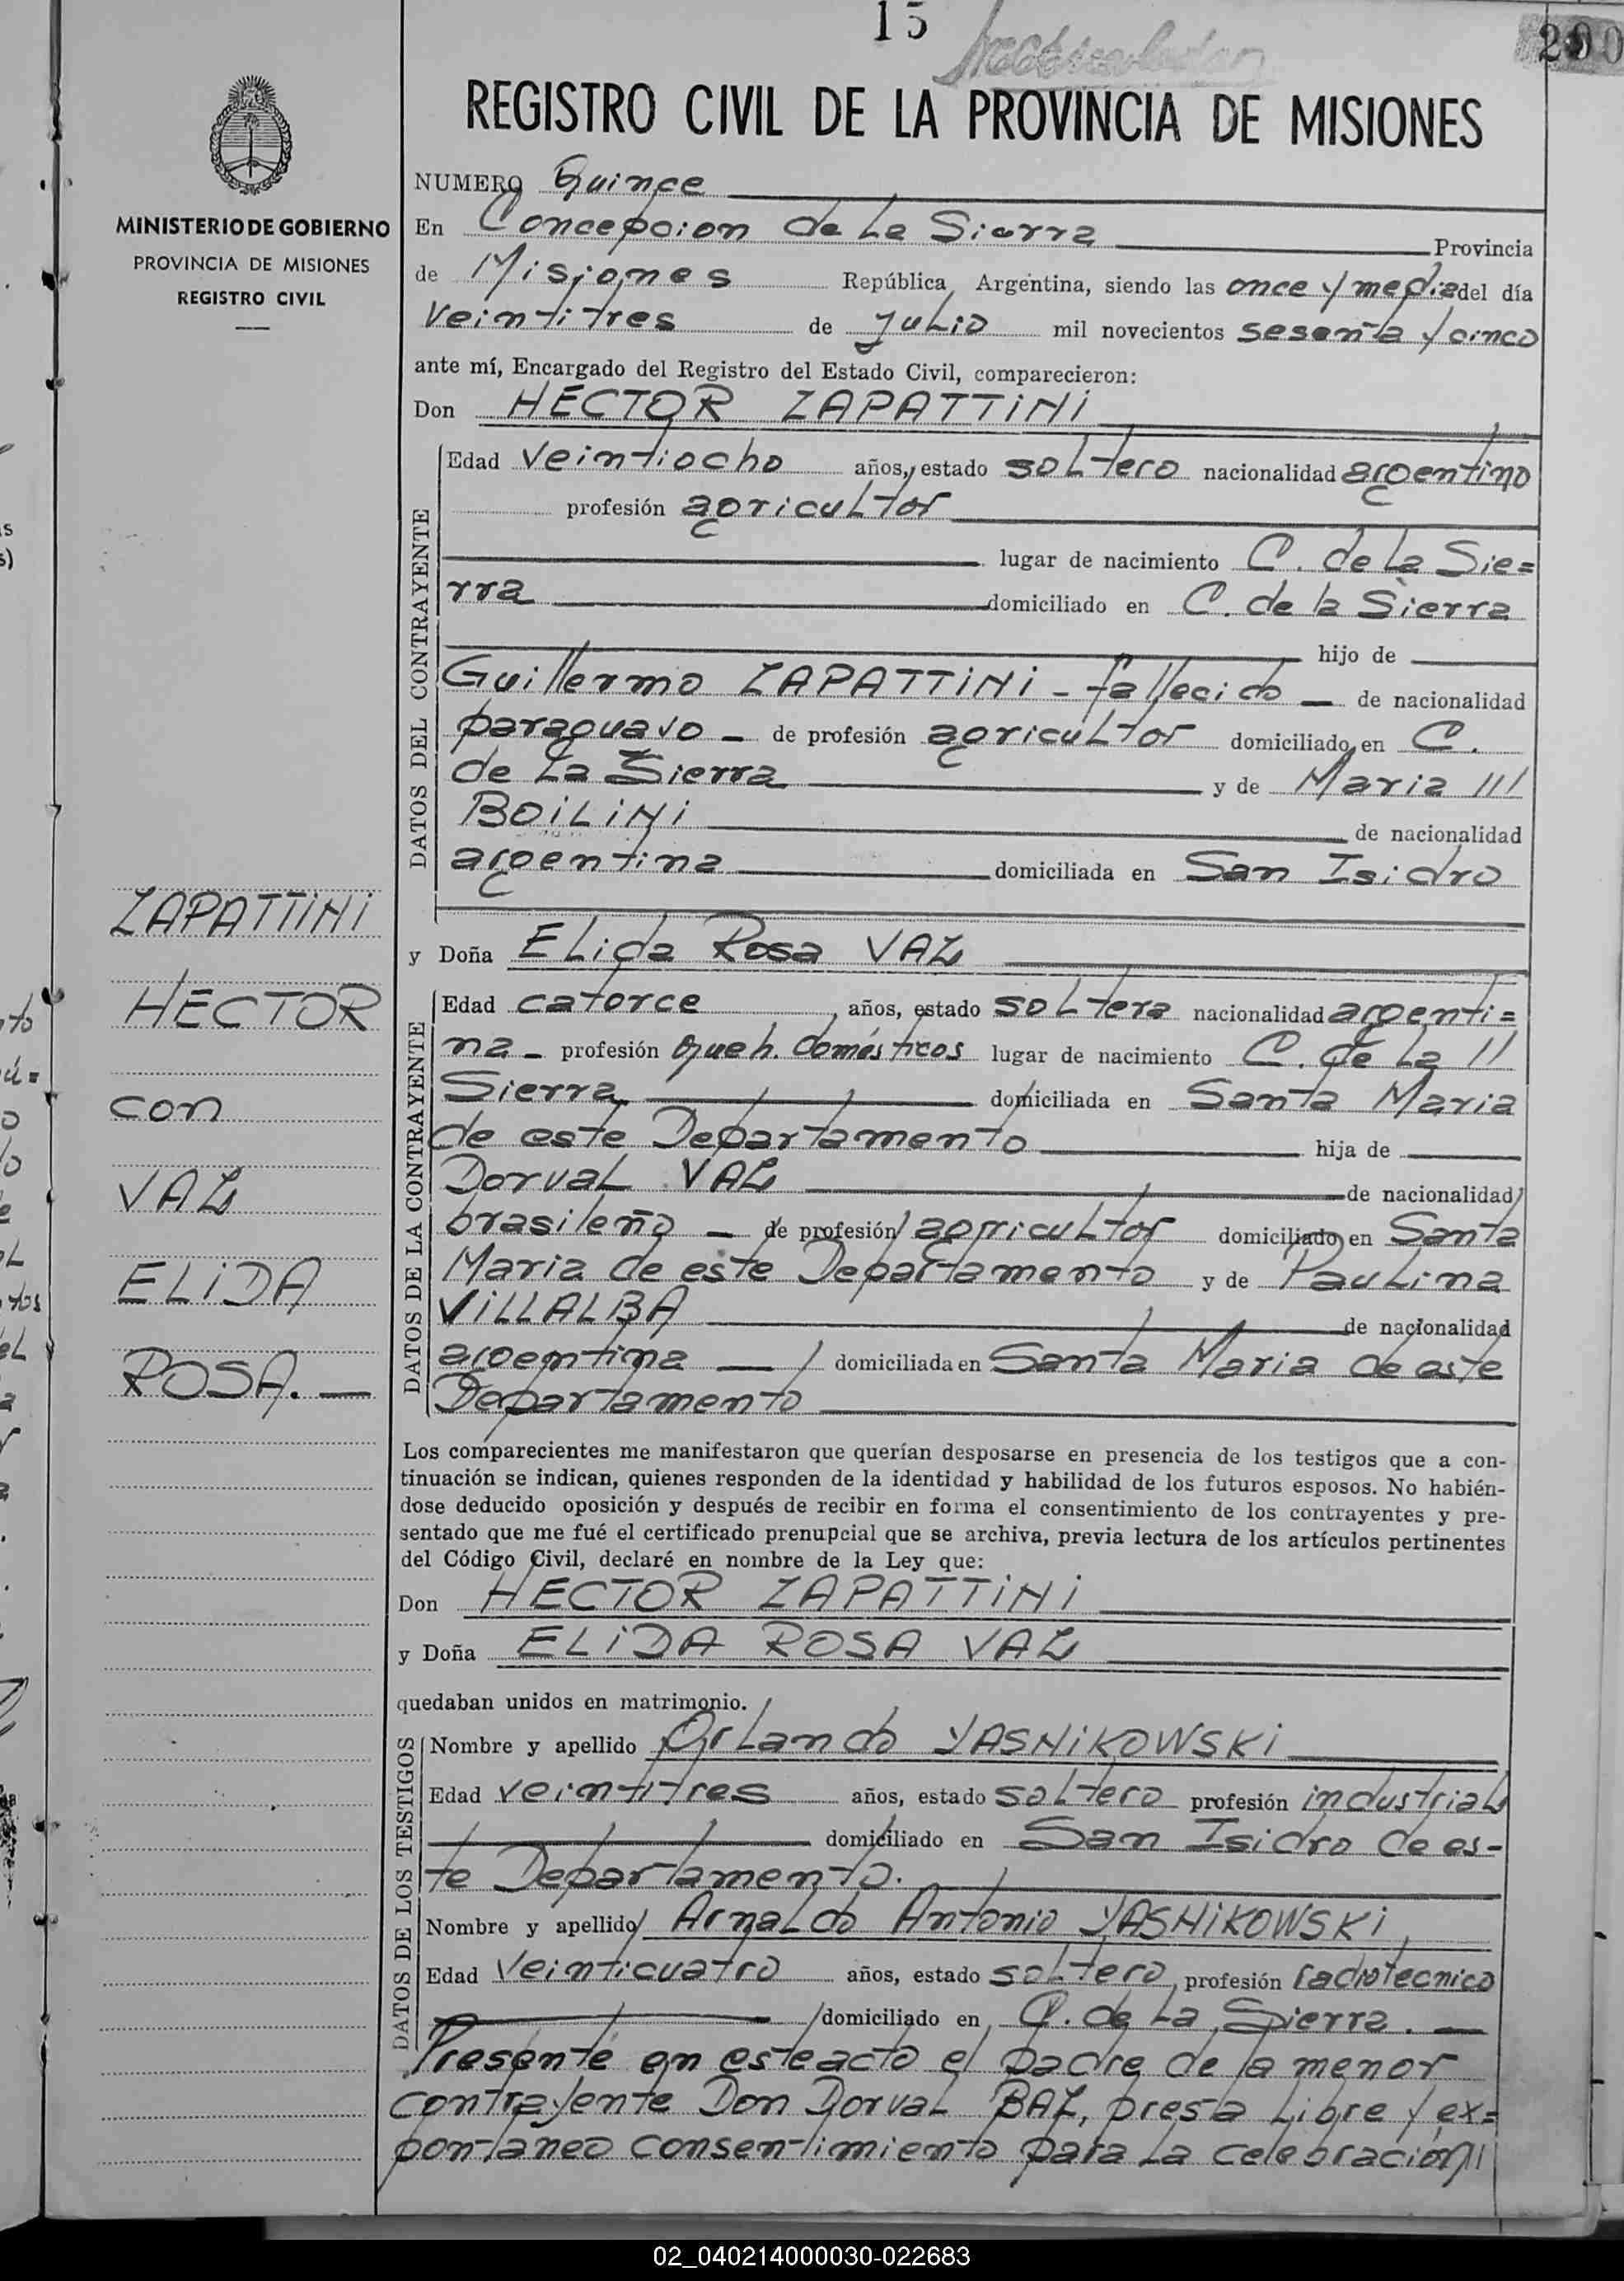 15
200
REGISTRO CIVIL DE LA PROVINCIA DE MISIONES
MINISTERIO DE GOBIERNO
PROVINCIA DE MISIONES
REGISTRO CIVIL
NUMERO Quince
En Concepcion de La Sierra Provincia
de Misiones República Argentina, siendo las once y media del día
Veintitres de Julio mil novecientos sesenta y cinco
ante mí, Encargado del Registro del Estado Civil, comparecieron:
Don HECTOR ZAPATTINI
DATOS DEL CONTRAYENTE
Edad veintiocho años, estado soltero nacionalidad argentino
profesión agricultor
lugar de nacimiento C. de La Sie=
rra domiciliado en C. de la Sierra
hijo de
Guillermo ZAPATTINI - fallecido - de nacionalidad
paraguayo - de profesión agricultor domiciliado en C.
de La Sierra y de Maria ///
BOILINI de nacionalidad
argentina domiciliada en San Isidro
y Doña Elida Rosa VAZ
DATOS DE LA CONTRAYENTE
Edad catorce años, estado soltera nacionalidad argenti=
na - profesión Queh. domésticos lugar de nacimiento C. de La //
Sierra domiciliada en Santa Maria
de este Departamento hija de
Dorval VAZ de nacionalidad
brasileño - de profesión agricultor domiciliado en Santa
Maria de este Departamento y de Paulina
VILLALBA de nacionalidad
argentina - domiciliada en Santa Maria de este
Departamento
ZAPATTINI
HECTOR
con
VAZ
ELIDA
ROSA.-
Los comparecientes me manifestaron que querían desposarse en presencia de los testigos que a con-
tinuación se indican, quienes responden de la identidad y habilidad de los futuros esposos. No habién-
dose deducido oposición y después de recibir en forma el consentimiento de los contrayentes y pre-
sentado que me fué el certificado prenupcial que se archiva, previa lectura de los artículos pertinentes
del Código Civil, declaré en nombre de la Ley que:
Don HECTOR ZAPATTINI
y Doña ELIDA ROSA VAZ
quedaban unidos en matrimonio.
DATOS DE LOS TESTIGOS
Nombre y apellido Orlando YASNIKOWSKI
Edad veintitres años, estado soltero profesión industrial
domiciliado en San Isidro de es-
te Departamento.
Nombre y apellido Arnaldo Antonio YASNIKOWSKI
Edad Veinticuatro años, estado soltero profesión radiotecnico
domiciliado en C. de La Sierra. -
Presente en este acto el padre de la menor
contrayente Don Dorval BAZ, presta Libre y ex=
pontaneo consentimiento para La celebración//
02_040214000030-022683